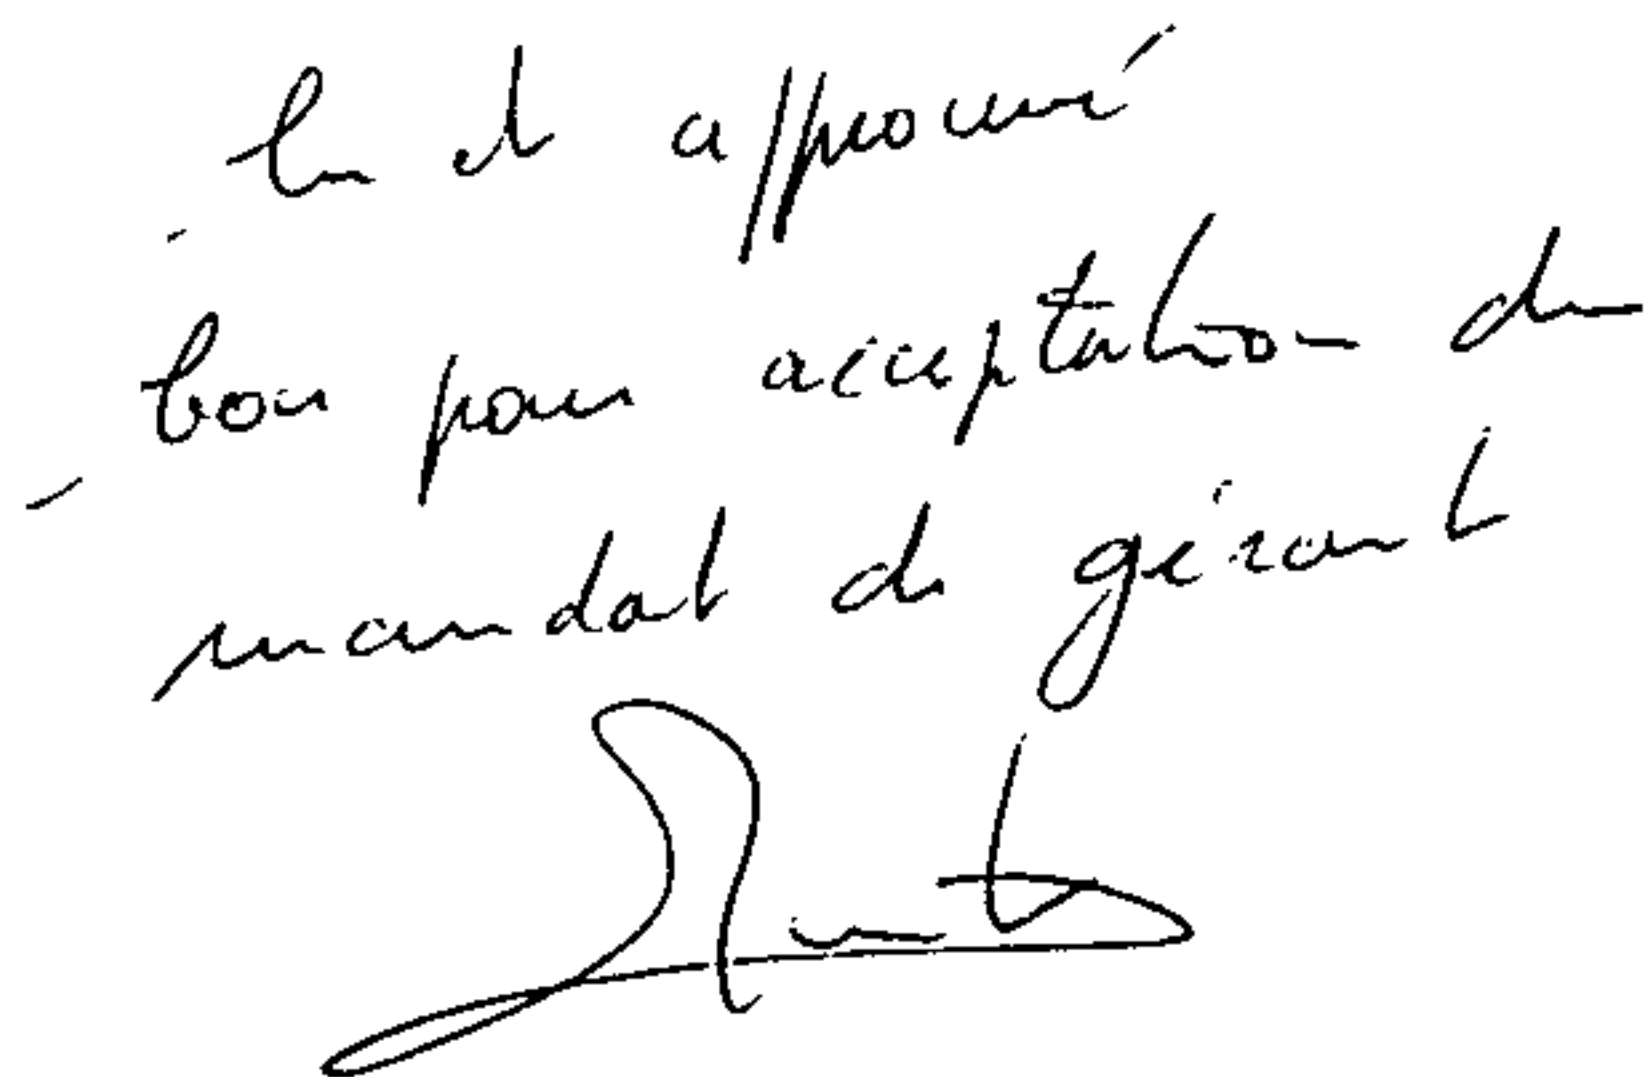 - lu et approuvé
- bon pour acceptation du
mandat de gérant